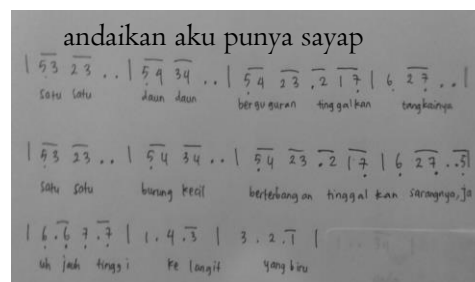 andaikan aku punya sayap
| 53 23 . . | 54 34 . . | 54 23 .2 17 | 6 27 . . |
satu satu daun daun berguguran tinggalkan tangkainya
| 53 23 . . | 54 34 . . | 54 23 .2 17 | 6 27 . .5 |
satu satu burung kecil berterbangan tinggal kan sarangnya, ja
| 6 .6 7 .7 | 1 . 4 .3 | 3 . 2 .1 |
uh jauh tinggi ke langit yang biru